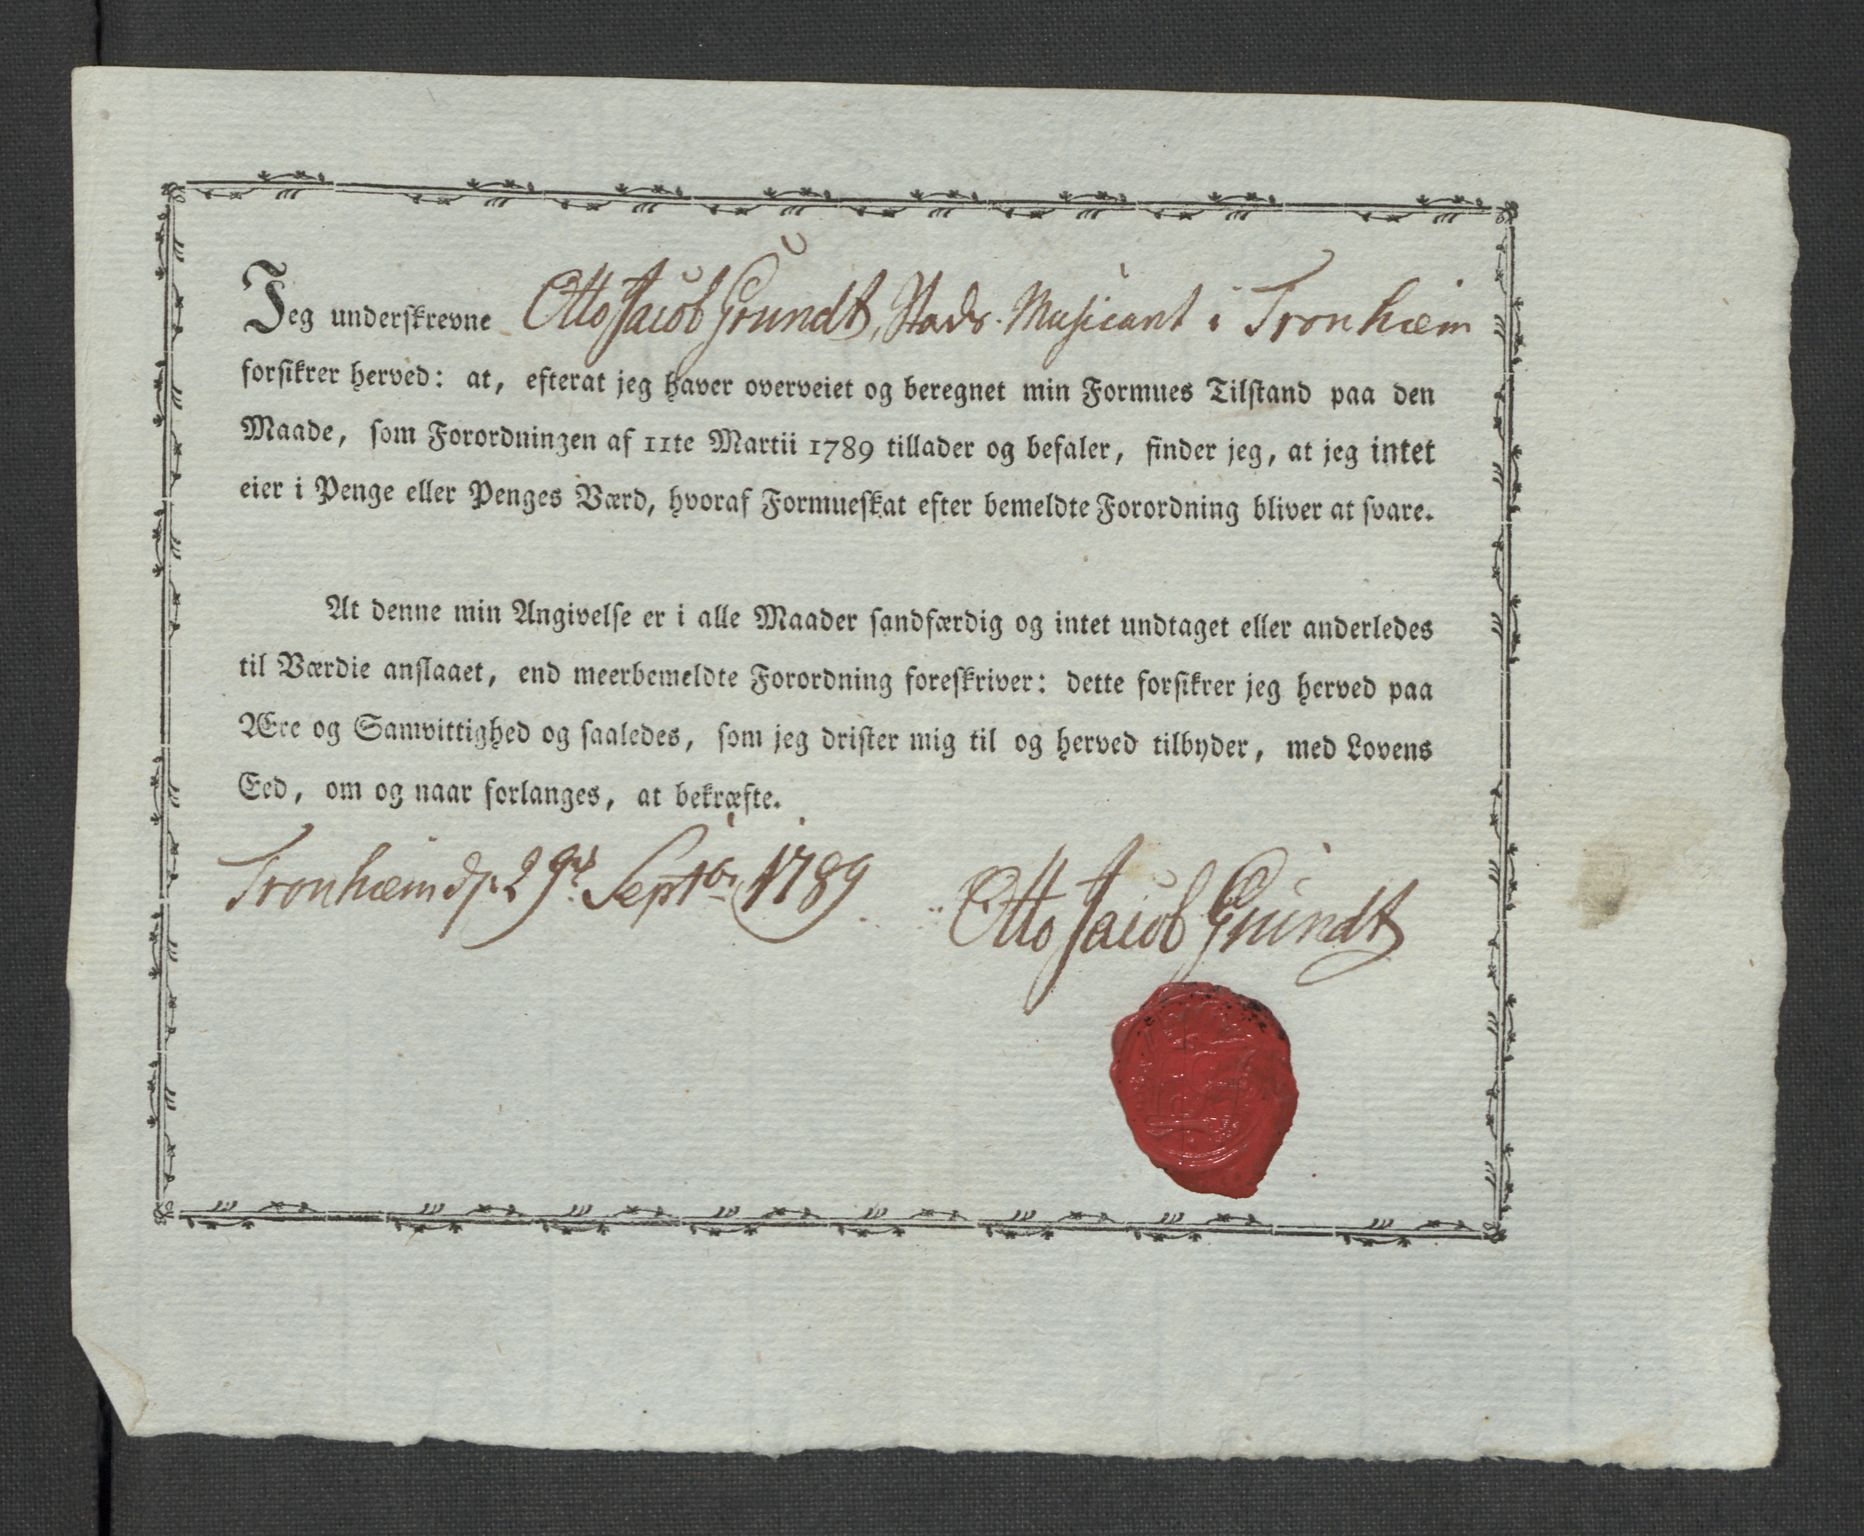 Jeg underskrevne Otto Jacob Grundt, Stads. Musicant i Tronhæim
forsikrer herved: at, efterat jeg haver overveiet og beregnet min Formues Tilstand paa den
Maade, som Forordningen af 11te Martii 1789 tillader og befaler, finder jeg, at jeg intet
eier i Penge eller Penges Værd, hvoraf Formueskat efter bemeldte Forordning bliver at svare.
At denne min Angivelse er i alle Maader sandfærdig og intet undtaget eller anderledes
til Værdie anslaaet, end meerbemeldte Forordning foreskriver: dette forsikrer jeg herved paa
Ære og Samvittighed og saaledes, som jeg drister mig til og herved tilbyder, med Lovens
Eed, om og naar forlanges, at bekræfte.
Tronhæim d. 29de Septbr 1789
Otto Jacob Grundt